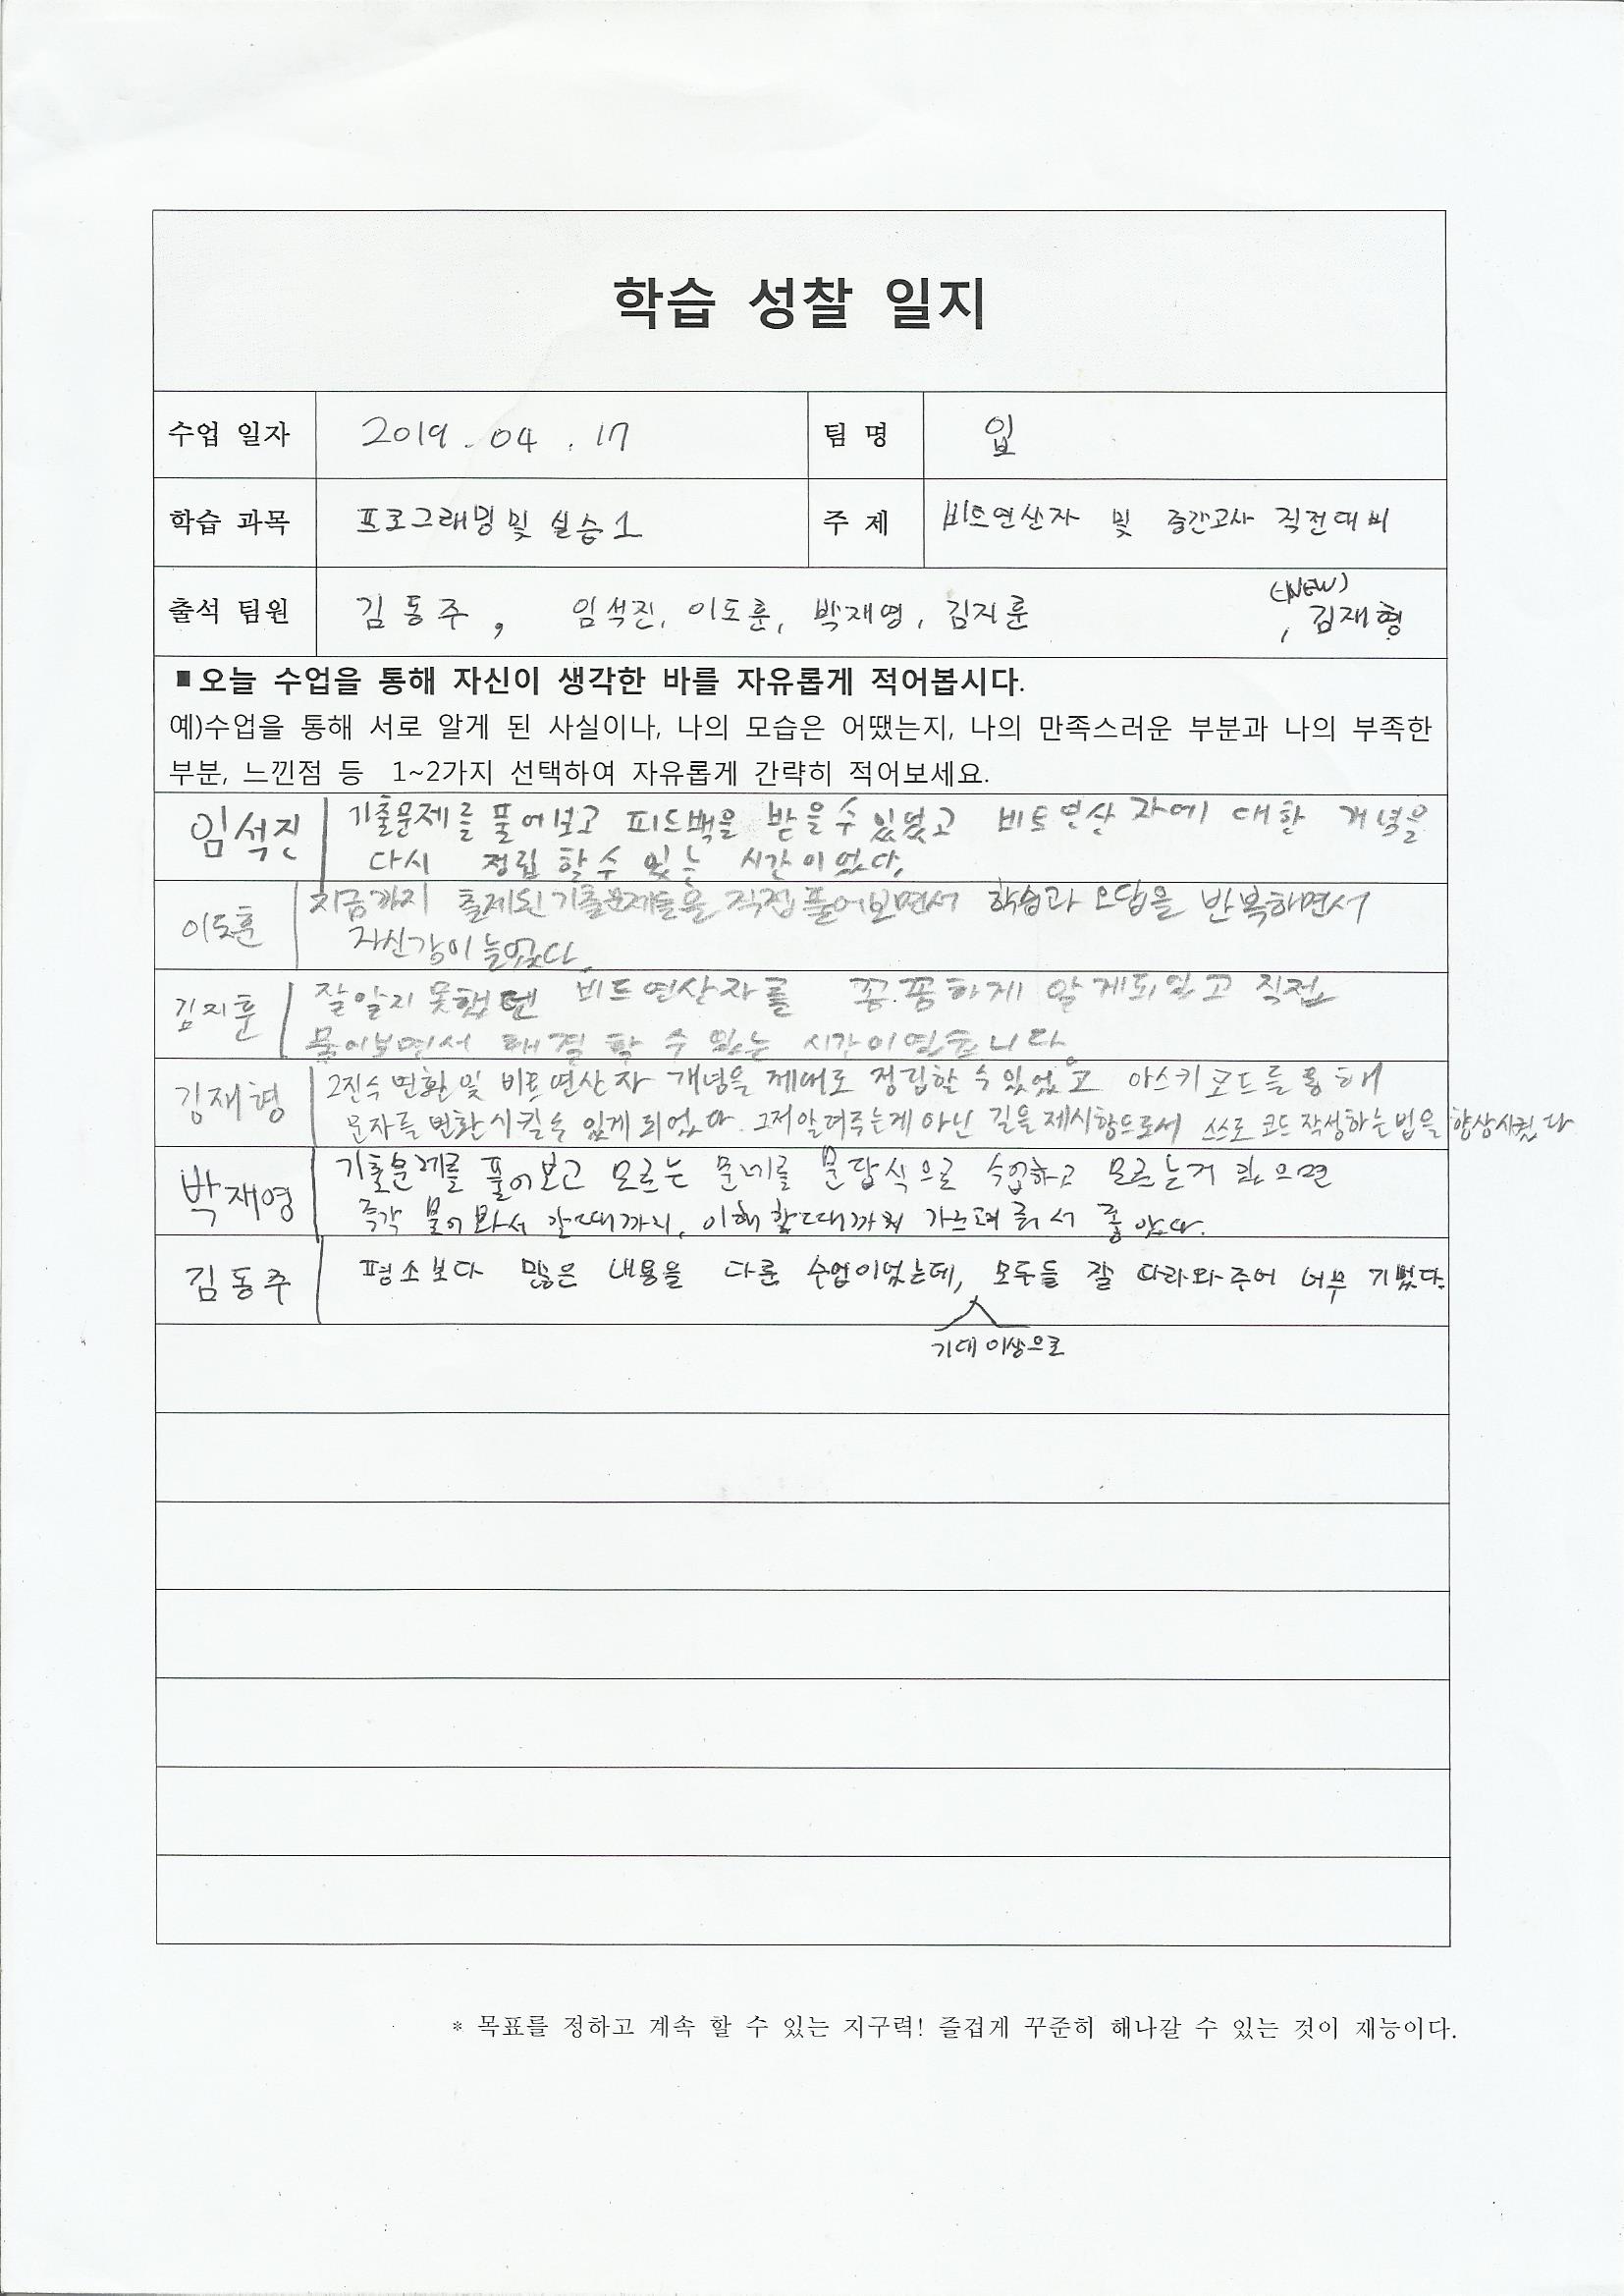 학습 성찰 일지
수업 일자 2019. 04. 17 팀 명 입
학습 과목 프로그래밍 및 실습1 주 제 비트연산자 및 중간고사 직전대비
(NEW)
출석 팀원 김동주, 임석진, 이도훈, 박재영, 김지훈, 김재형
■ 오늘 수업을 통해 자신이 생각한 바를 자유롭게 적어봅시다.
예)수업을 통해 서로 알게 된 사실이나, 나의 모습은 어땠는지, 나의 만족스러운 부분과 나의 부족한
부분, 느낀점 등 1~2가지 선택하여 자유롭게 간략히 적어보세요.
임석진 기출문제를 풀어보고 피드백을 받을 수 있었고 비트연산자에 대한 개념을
다시 정립 할 수 있는 시간이었다.
이도훈 지금까지 출제된 기출문제들을 직접 풀어보면서 학습과 오답을 반복하면서
자신감이 늘었다.
김지훈 잘 알지 못했던 비트연산자를 꼼꼼하게 알게되었고 직접
물어보면서 해결 할 수 있는 시간이었습니다.
김재형 2진수 변환 및 비트연산자 개념을 제대로 정립할 수 있었고 아스키코드를 통해
문자를 변환시킬수 있게 되었다. 그저 알려주는게 아닌 길을 제시함으로서 스스로 코드 작성하는 법을 향상시켰다
박재영 기출문제를 풀어보고 모르는 문제를 문답식으로 수업하고 모르는거 있으면
즉각 물어봐서 알때까지, 이해할때까지 가르쳐 줘서 좋았다.
김동주 평소보다 많은 내용을 다룬 수업이었는데, 모두들 잘 따라와주어 너무 기뻤다.
기대 이상으로
* 목표를 정하고 계속 할 수 있는 지구력! 즐겁게 꾸준히 해나갈 수 있는 것이 재능이다.